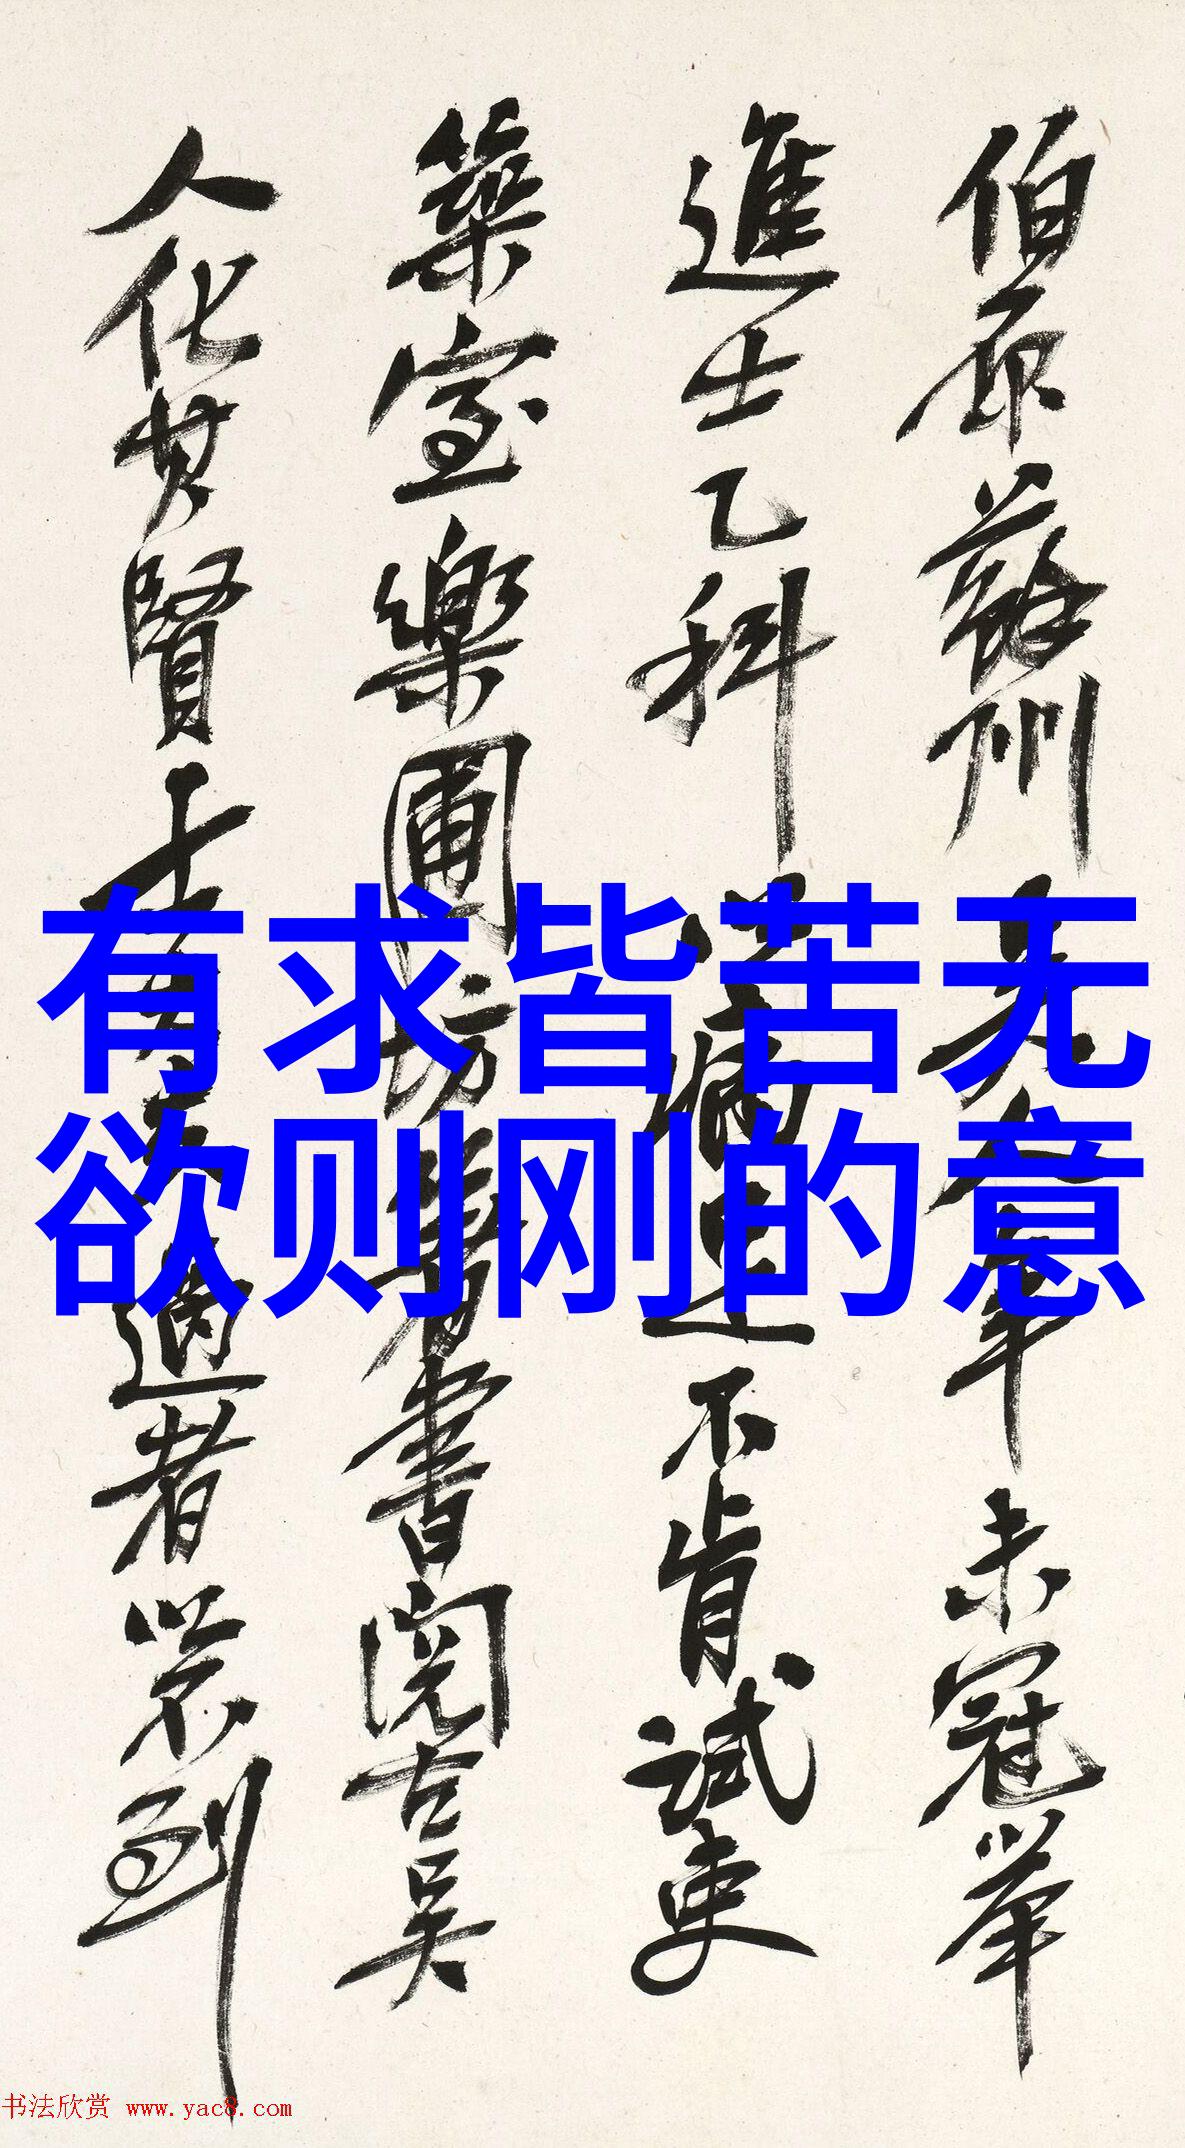 伯原蘇州吳人年未冠舉
進士乙科病足不肯試吏
築室樂圃坊著書閱古吳
人化其賢士過者以不到
有求皆苦无
欲则刚的意
书法欣赏 www.yac8.com